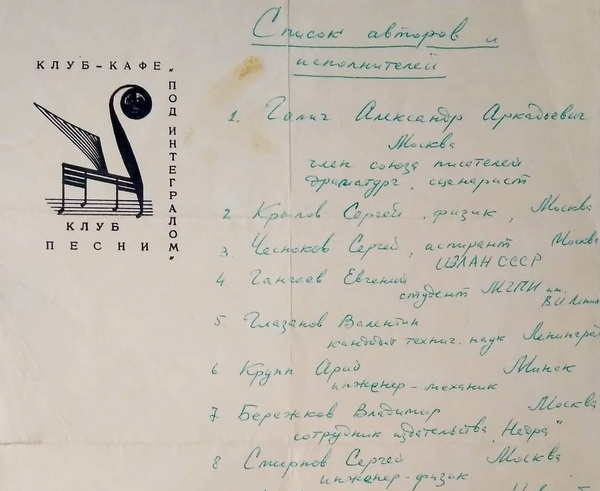 КЛУБ-КАФЕ
„ПОД ИНТЕГРАЛОМ"
КЛУБ
ПЕСНИ
Список авторов и
исполнителей
1. Галич Александр Аркадьевич
Москва
член союза писателей
драматург, сценарист
2 Крылов Сергей, физик, Москва
3. Чесноков Сергей, аспирант Москва
ИЭЛАН СССР
4 Евгений
студент МГПИ им.
В.И. Ленин
5. Глазанов Валентин
кандидат технич. наук Ленинград
6 Крупп Арид Минск
инженер-механик
7 Бережков Владимир Москва
сотрудник издательства „Недра"
8 Смирнов Сергей Москва
инженер-физик